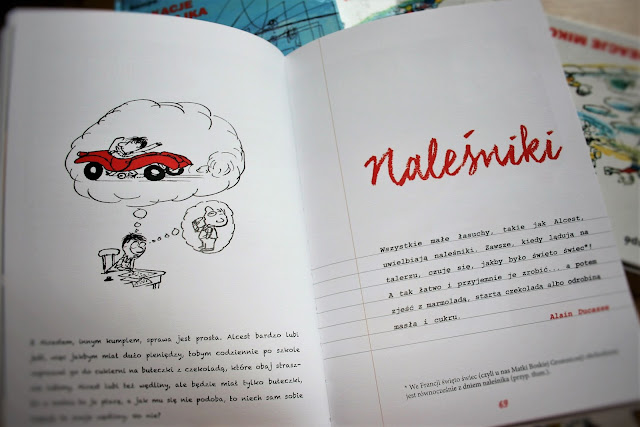 Z Alcestem, innym kumplem, sprawa jest prosta. Alcest bardzo lubi
jeść, więc jakbym miał dużo pieniędzy, tobym codziennie po szkole
zapraszał go do cukierni na bułeczki z czekoladą, które obaj strasz-
nie lubimy. Alcest lubi też wędliny, ale będzie miał tylko bułeczki,
bo w końcu to ja płacę, a jak mu się nie podoba, to niech sam sobie
kupuje te swoje wędliny. No nie?
Naleśniki
Wszystkie małe łasuchy, takie jak Alcest,
uwielbiają naleśniki. Zawsze, kiedy lądują na
talerzu, czuję się, jakby było święto świec*!
A tak łatwo i przyjemnie je zrobić... a potem
zjeść z marmoladą, startą czekoladą albo odrobiną
masła i cukru.
Alain Ducasse
* We Francji święto świec (czyli u nas Matki Boskiej Gromnicznej) obchodzone
jest równocześnie z dniem naleśnika (przyp. tłum.).
69